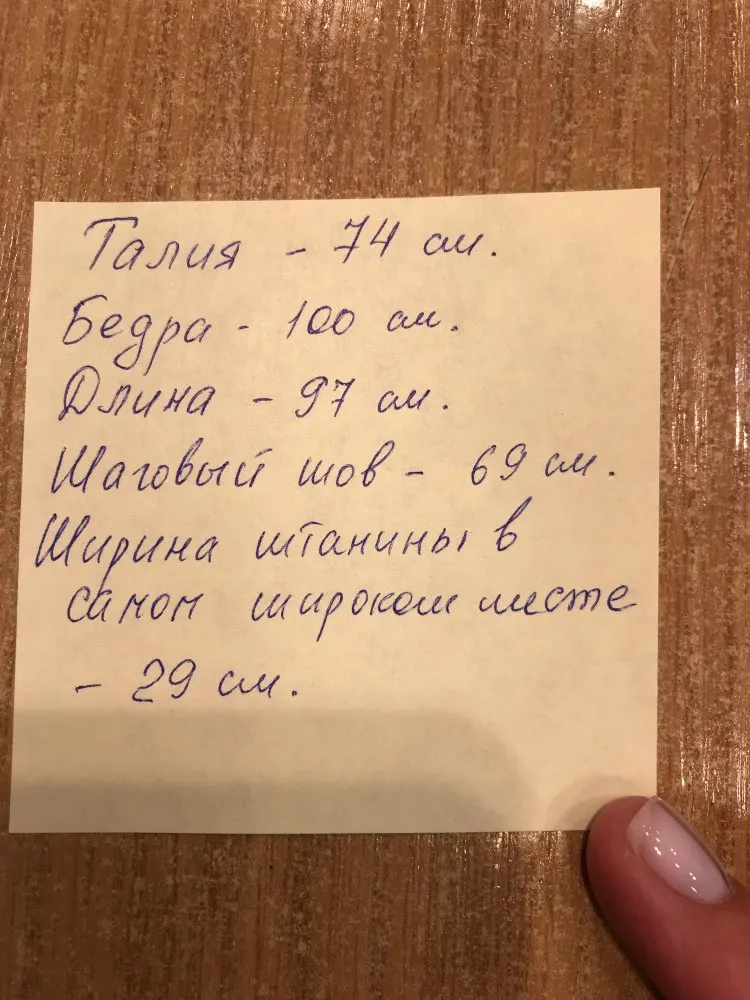 Талия - 74 см.
Бедра - 100 см.
Длина - 97 см.
Шаговый шов - 69 см.
Ширина штанины в
самом широком месте
- 29 см.